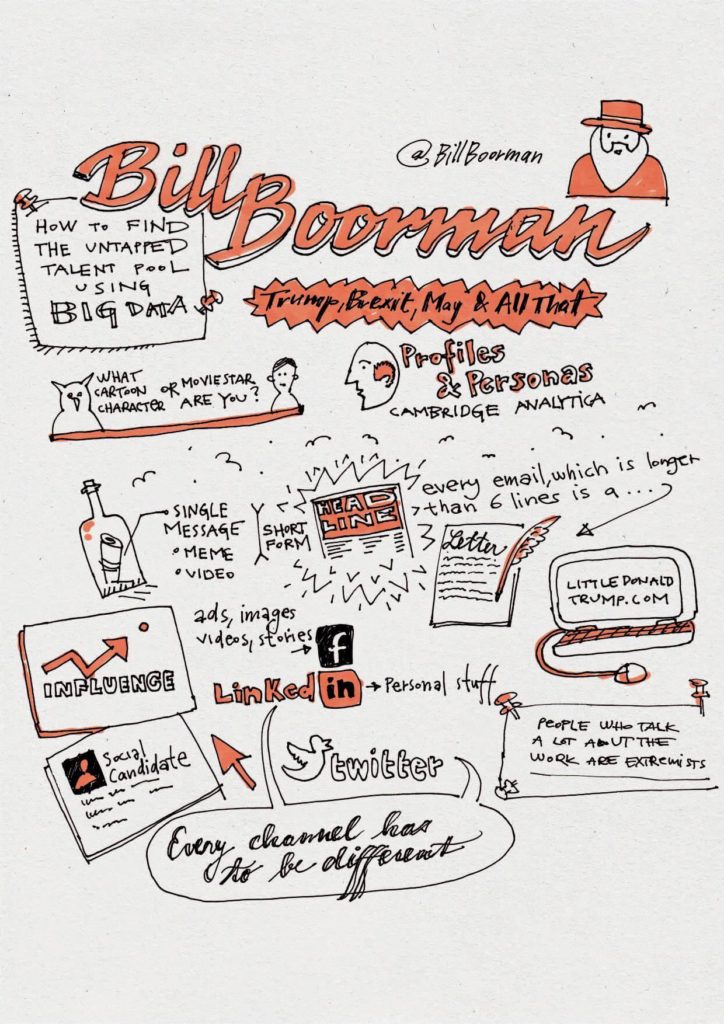 @BillBoorman
Bill
Boorman
HOW TO FIND
THE UNTAPPED
TALENT POOL
USING
BIG DATA
Trump, Brexit, May & All That
WHAT
CARTOON OR MOVIESTAR
CHARACTER ARE YOU?
Profiles
& Personas
CAMBRIDGE ANALYTICA
SINGLE
MESSAGE
• MEME
• VIDEO
SHORT
FORM
HEAD
LINE
every email, which is longer
than 6 lines is a ....
Letter
LITTLEDONALD
TRUMP.COM
INFLUENCE
ads, images
videos, stories
f
Linked in
Personal stuff
Social
Candidate
twitter
PEOPLE WHO TALK
A LOT ABOUT THE
WORK ARE EXTREMISTS
Every channel has
to be different